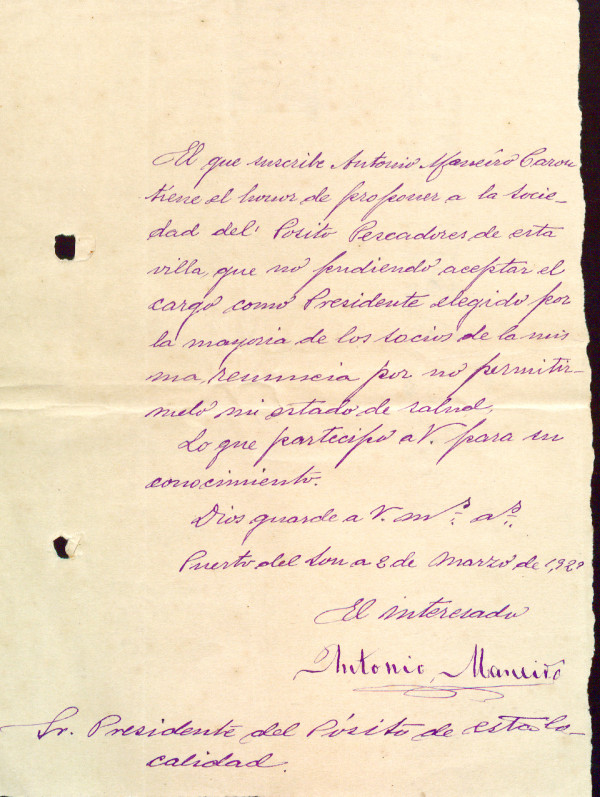 El que suscribe Antonio Maneiro Carou
tiene el honor de proponer a la socie-
dad del Posito Pescadores de esta
villa, que no pudiendo aceptar el
cargo como Presidente elegido por
la mayoria de los socios de la mis
ma, renuncia por no permitir-
melo mi estado de salud.
Lo que participo a V. para su
conocimiento.
Dios guarde a V. mˢ. aˢ.
Puerto del Son a 2 de Marzo de
El interesado
Antonio Maneiro
Sr. Presidente del Pósito de esta lo-
calidad.